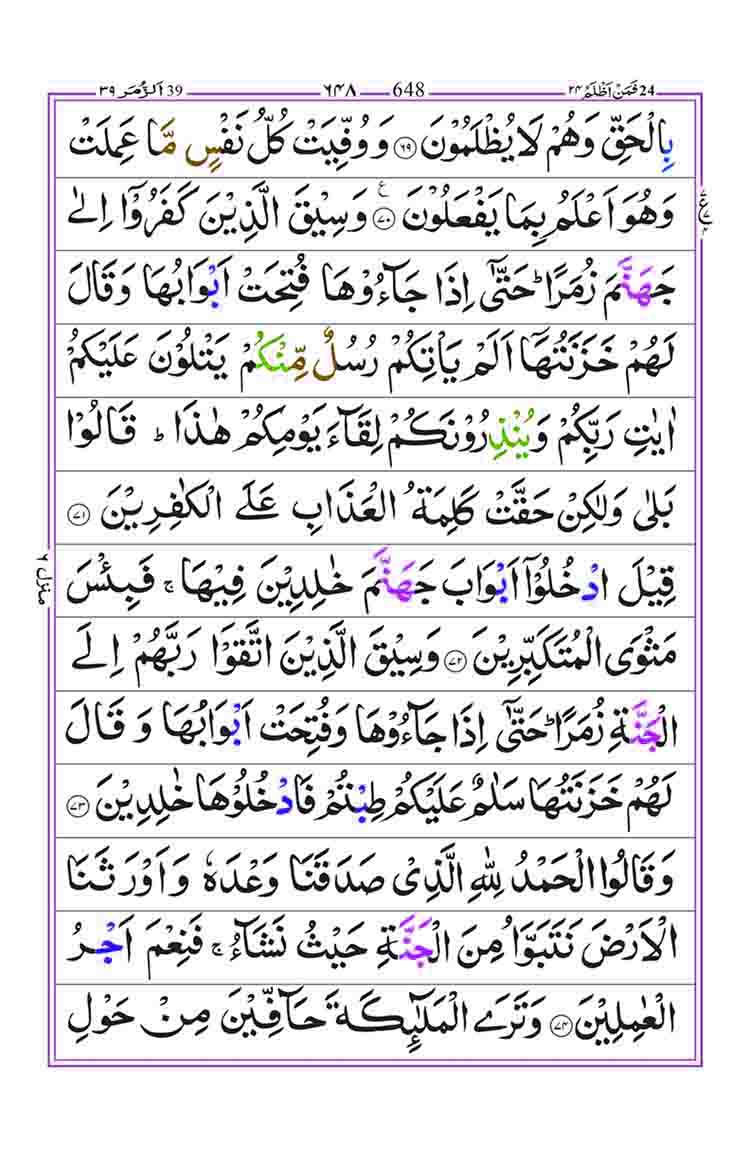 24 فَمَنْ اَظْلَمُ ۲۴ 648 ۶۴۸ 39 اَلزُّمَر ۳۹
بِالْحَقِّ وَهُمْ لَا يُظْلَمُوْنَ ۶۹ وَ وُفِّيَتْ كُلُّ نَفْسٍ مَّا عَمِلَتْ
وَهُوَ اَعْلَمُ بِمَا يَفْعَلُوْنَ ۷۰ ع وَسِيْقَ الَّذِيْنَ كَفَرُوْٓا اِلٰى
جَهَنَّمَ زُمَرًا ؕ حَتّٰٓى اِذَا جَآءُوْهَا فُتِحَتْ اَبْوَابُهَا وَقَالَ
لَهُمْ خَزَنَتُهَآ اَلَمْ يَاْتِكُمْ رُسُلٌ مِّنْكُمْ يَتْلُوْنَ عَلَيْكُمْ
اٰيٰتِ رَبِّكُمْ وَيُنْذِرُوْنَكُمْ لِقَآءَ يَوْمِكُمْ هٰذَا ؕ قَالُوْا
بَلٰى وَلٰكِنْ حَقَّتْ كَلِمَةُ الْعَذَابِ عَلَى الْكٰفِرِيْنَ ۷۱
قِيْلَ ادْخُلُوْٓا اَبْوَابَ جَهَنَّمَ خٰلِدِيْنَ فِيْهَا ۚ فَبِئْسَ
مَثْوَى الْمُتَكَبِّرِيْنَ ۷۲ وَسِيْقَ الَّذِيْنَ اتَّقَوْا رَبَّهُمْ اِلَى
الْجَنَّةِ زُمَرًا ؕ حَتّٰٓى اِذَا جَآءُوْهَا وَفُتِحَتْ اَبْوَابُهَا وَ قَالَ
لَهُمْ خَزَنَتُهَا سَلٰمٌ عَلَيْكُمْ طِبْتُمْ فَادْخُلُوْهَا خٰلِدِيْنَ ۷۳
وَقَالُوا الْحَمْدُ لِلّٰهِ الَّذِيْ صَدَقَنَا وَعْدَهٗ وَاَوْرَثَنَا
الْاَرْضَ نَتَبَوَّاُ مِنَ الْجَنَّةِ حَيْثُ نَشَآءُ ۚ فَنِعْمَ اَجْرُ
الْعٰمِلِيْنَ ۷۴ وَتَرَى الْمَلٰٓئِكَةَ حَآفِّيْنَ مِنْ حَوْلِ
منزل ۶